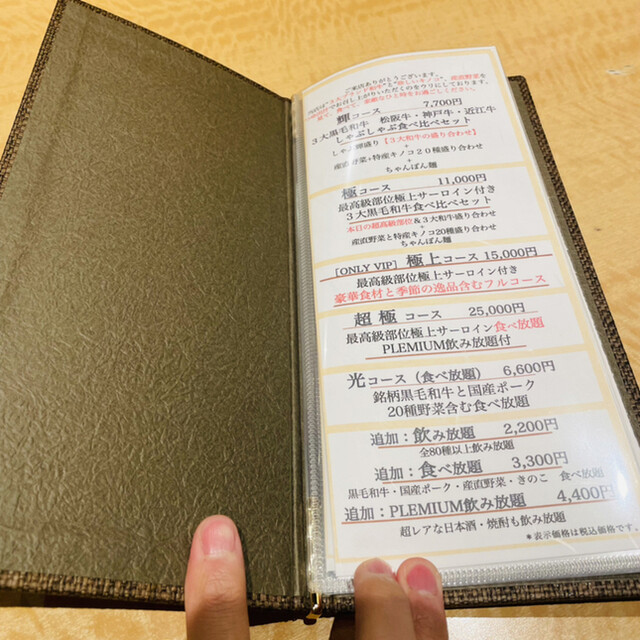 ご来店ありがとうございます。
産直野菜を
輝コース 7,700円
3大黒毛和牛 松阪牛・神戸牛・近江牛
しゃぶしゃぶ食べ比べセット
【3大和牛の盛り合わせ】
+
産直野菜+特産キノコ20種盛り合わせ
+
ちゃんぽん麺
極コース 11,000円
最高級部位極上サーロイン付き
3大黒毛和牛食べ比べセット
本日の超高級部位&3大和牛盛り合わせ
+
産直野菜と特産キノコ20種盛り合わせ
ちゃんぽん麺
[ONLY VIP] 極上コース 15,000円
最高級部位極上サーロイン付き
豪華食材と季節の逸品含むフルコース
超極 コース 25,000円
最高級部位極上サーロイン食べ放題
PLEMIUM飲み放題付
光コース（食べ放題） 6,600円
銘柄黒毛和牛と国産ポーク
20種野菜含む食べ放題
追加：飲み放題 2,200円
全80種以上飲み放題
追加：食べ放題 3,300円
黒毛和牛・国産ポーク・産直野菜・きのこ 食べ放題
追加：PLEMIUM飲み放題 4,400円
超レアな日本酒・焼酎も飲み放題
*表示価格は税込価格です。